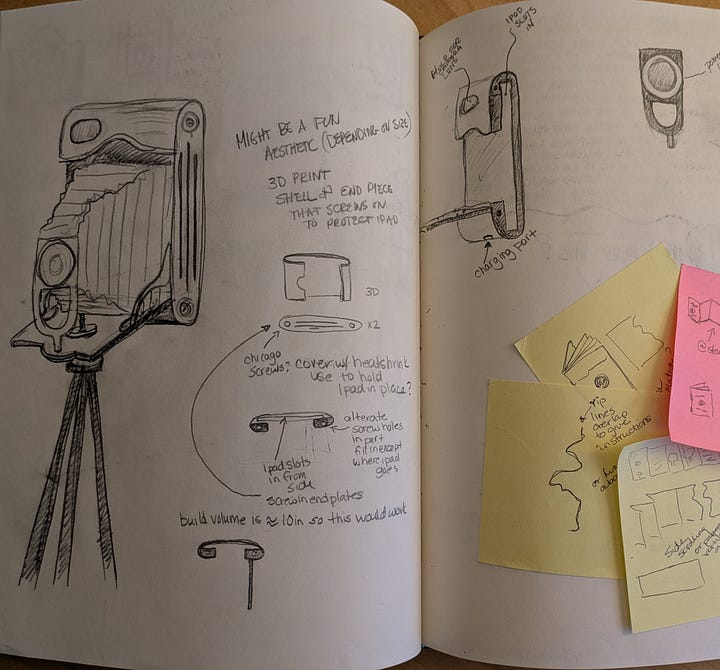 MIGHT BE A FUN
AESTHETIC (DEPENDING ON SIZE)
3D PRINT
SHELL & END PIECE
THAT SCREWS ON
TO PROTECT IPAD
3D
x2
chicago
screws?
cover w/ heatshrink
use to hold
ipad in place?
alternate
screw holes
in part
fill in except
where ipad
goes
ipad slots
in from
side
screw in end plates
build volume is ≈ 10in so this would work
IPOD
SLOTS
IN
FOR
CAMERA
LENS
charging port
rip
lines
overlap
to give
instructions
or
side
scrolling
or